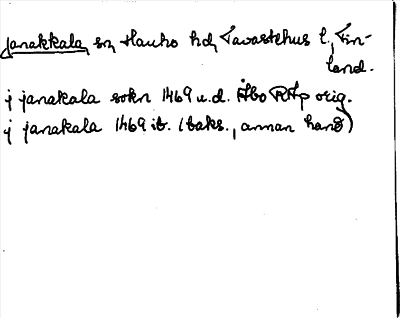 Janakkala, sn, Hauho hd, Tavastehus l., Fin-
land.
j janakala sokn 1469 u.d. Åbo RAp orig.
j janakala 1469 ib. (baks., annan hand)